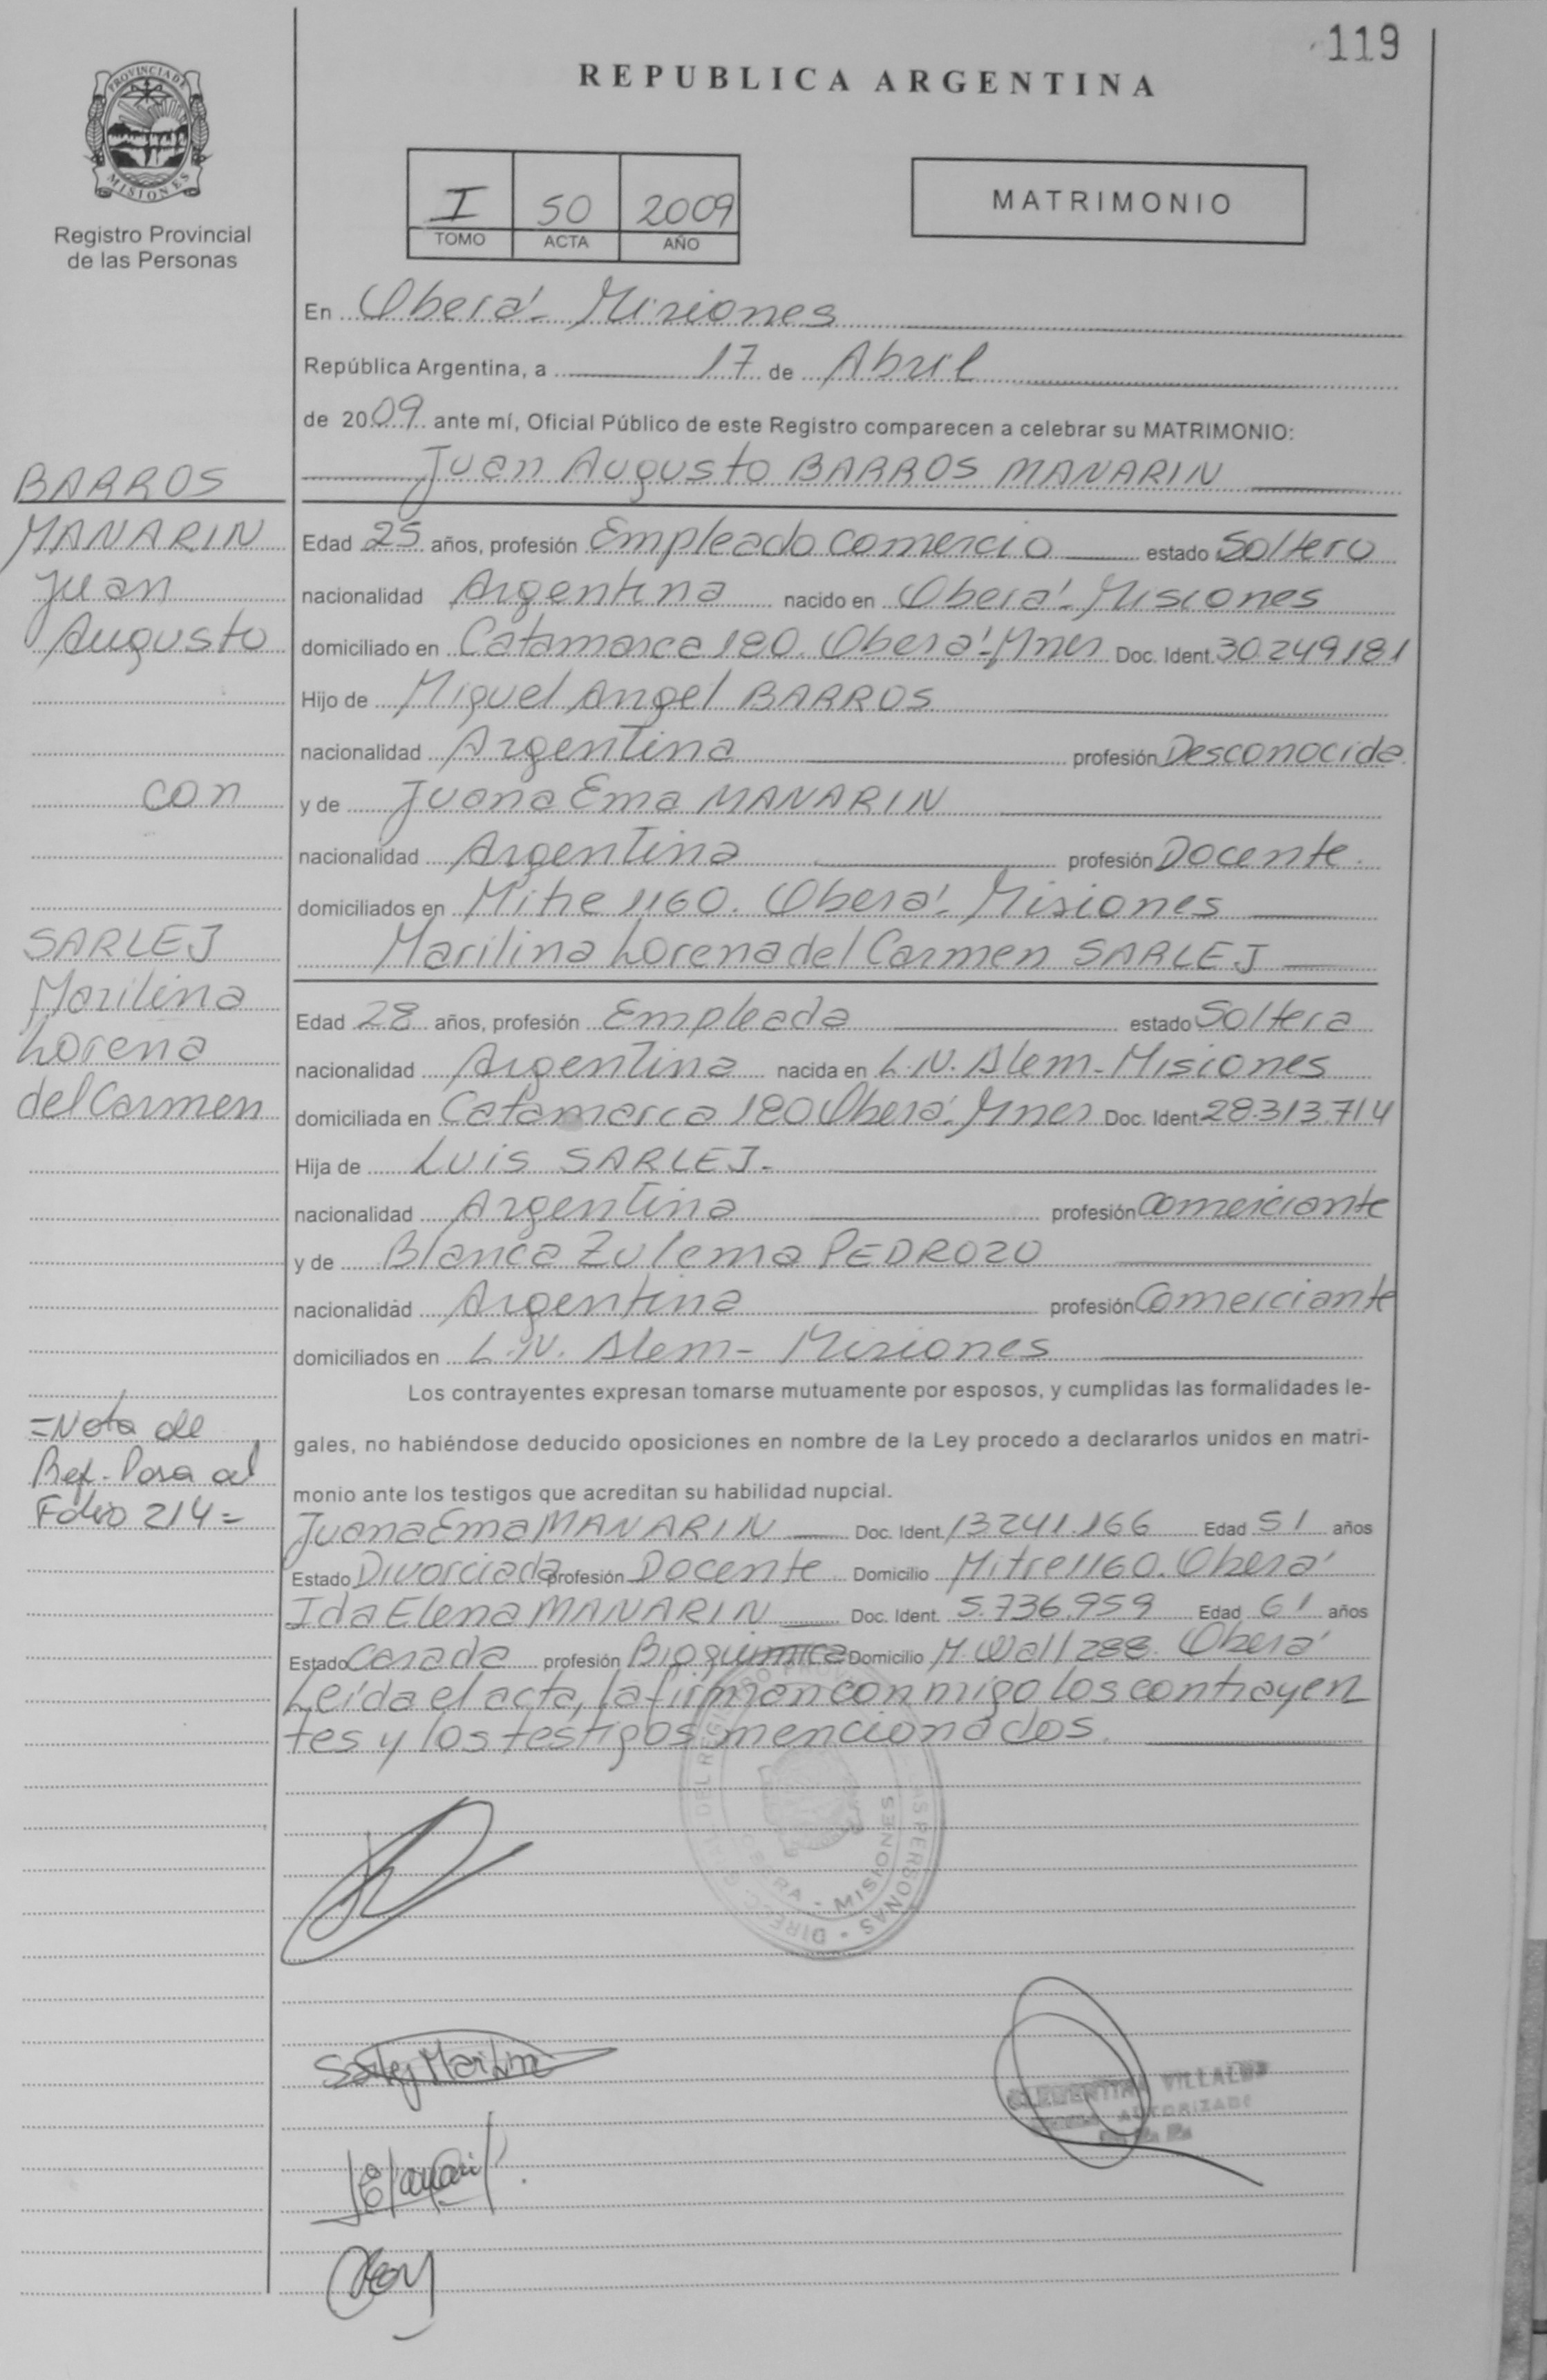 119
REPUBLICA ARGENTINA
PROVINCIA DE
MISIONES
Registro Provincial
de las Personas
I 50 2009
TOMO ACTA AÑO
MATRIMONIO
En Oberá - Misiones
República Argentina, a 17 de Abril
de 2009 ante mí, Oficial Público de este Registro comparecen a celebrar su MATRIMONIO:
Juan Augusto BARROS MANARIN
BARROS
MANARIN
Juan
Augusto
con
SARLEJ
Marilina
Lorena
del Carmen
Edad 25 años, profesión Empleado comercio estado Soltero
nacionalidad Argentina nacido en Oberá - Misiones
domiciliado en Catamarca 180. Oberá - Mnes Doc. Ident. 30.249.181
Hijo de Miguel Angel BARROS
nacionalidad Argentina profesión Desconocida.
y de Juana Ema MANARIN
nacionalidad Argentina profesión Docente.
domiciliados en Mitre 1160. Oberá - Misiones
Marilina Lorena del Carmen SARLEJ
Edad 28 años, profesión Empleada estado Soltera
nacionalidad Argentina nacida en L.N. Alem - Misiones
domiciliada en Catamarca 180 Oberá - Mnes Doc. Ident. 28.313.714
Hija de Luis SARLEJ.
nacionalidad Argentina profesión Comerciante
y de Blanca Zulema PEDROZO
nacionalidad Argentina profesión Comerciante
domiciliados en L.N. Alem - Misiones
Los contrayentes expresan tomarse mutuamente por esposos, y cumplidas las formalidades le-
gales, no habiéndose deducido oposiciones en nombre de la Ley procedo a declararlos unidos en matri-
monio ante los testigos que acreditan su habilidad nupcial.
=Nota de
Ref. Pasa al
Folio 214=
Juana Ema MANARIN Doc. Ident. 13241.166 Edad 51 años
Estado Divorciada profesión Docente Domicilio Mitre 1160. Oberá
Ida Elena MANARIN Doc. Ident. 5.736.959 Edad 61 años
Estado Casada profesión Bioquimica Domicilio H. Wall 288. Oberá
Leída el acta, la firman conmigo los contrayen
tes y los testigos mencionados.
MISIONES
Sarlej Marilina
CLEMENTINA VILLALBA
AUTORIZADA